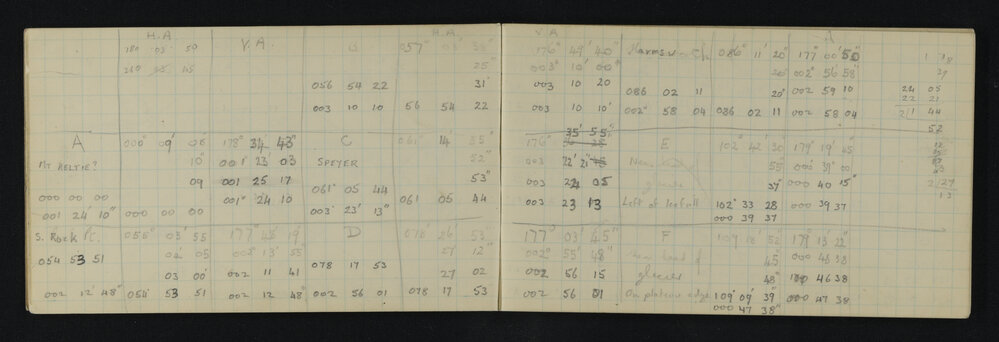 H.A
180 03 59 V.A. 057° 03' 176° 49' 40" 086° 11' 20" 177° 00' 50"
25" 003° 10' 00" 20" 002° 56 58"
056 54 22 31' 003 10 20 086 02 11 20" 002 59 10 24 05
22 21
003 10 10 56 54 22 003 10 10' 002° 58 04 086 02 11 002 58 04 2/1 44
52
35' 55"
A 000° 09' 178° 34' 43" C 061 14 55" 176° E 102° 42 30 179° 19' 45"
MT RELTIE? 10" 001° 23' 03 SPEYER 52" 003 22' 21" 55" 000° 39' 00
09 001 25 17 53" 003 24 05 glacier 37" 000 40 15" 2/27
000 00 00 001° 24 10 061° 05 44 061 05 44 003 23 13 Left of Icefall 102° 33 28 000 39 37 13
001 24' 10" 000 00 00 003° 23' 13" 000 39 37
S. Rock Pt 055° 03' 55 177° 48' 19" D 078° 26' 53" 177° 03' 45" F 109 18' 52" 179° 13' 22"
054 53 51 04' 05 002° 13' 55 078 17 53 27 12" 002° 55' 48" Near head of 45 000° 48 38
03 00' 002 11 41 27 02 002 56 15 glacier 48" 46 38
002 12' 48" 054° 53 51 002 12 48" 002 56 01 078 17 53 002 56 01 On plateau edge 109° 09' 39" 000 47 38
000 47 38"